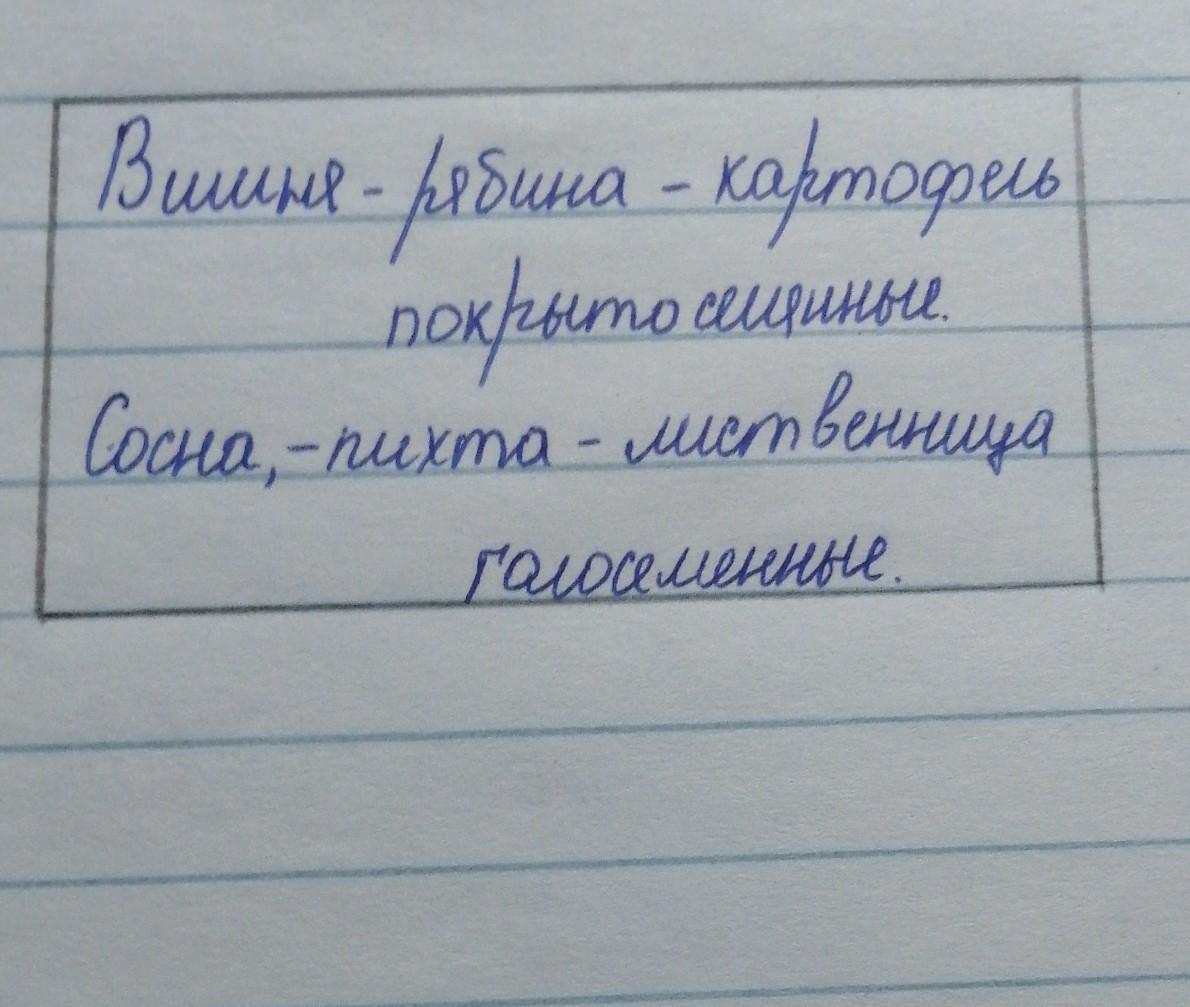 Вишня - рябина - картофель
покрытосемянные.
Сосна, - пихта - лиственница
голосеменные.